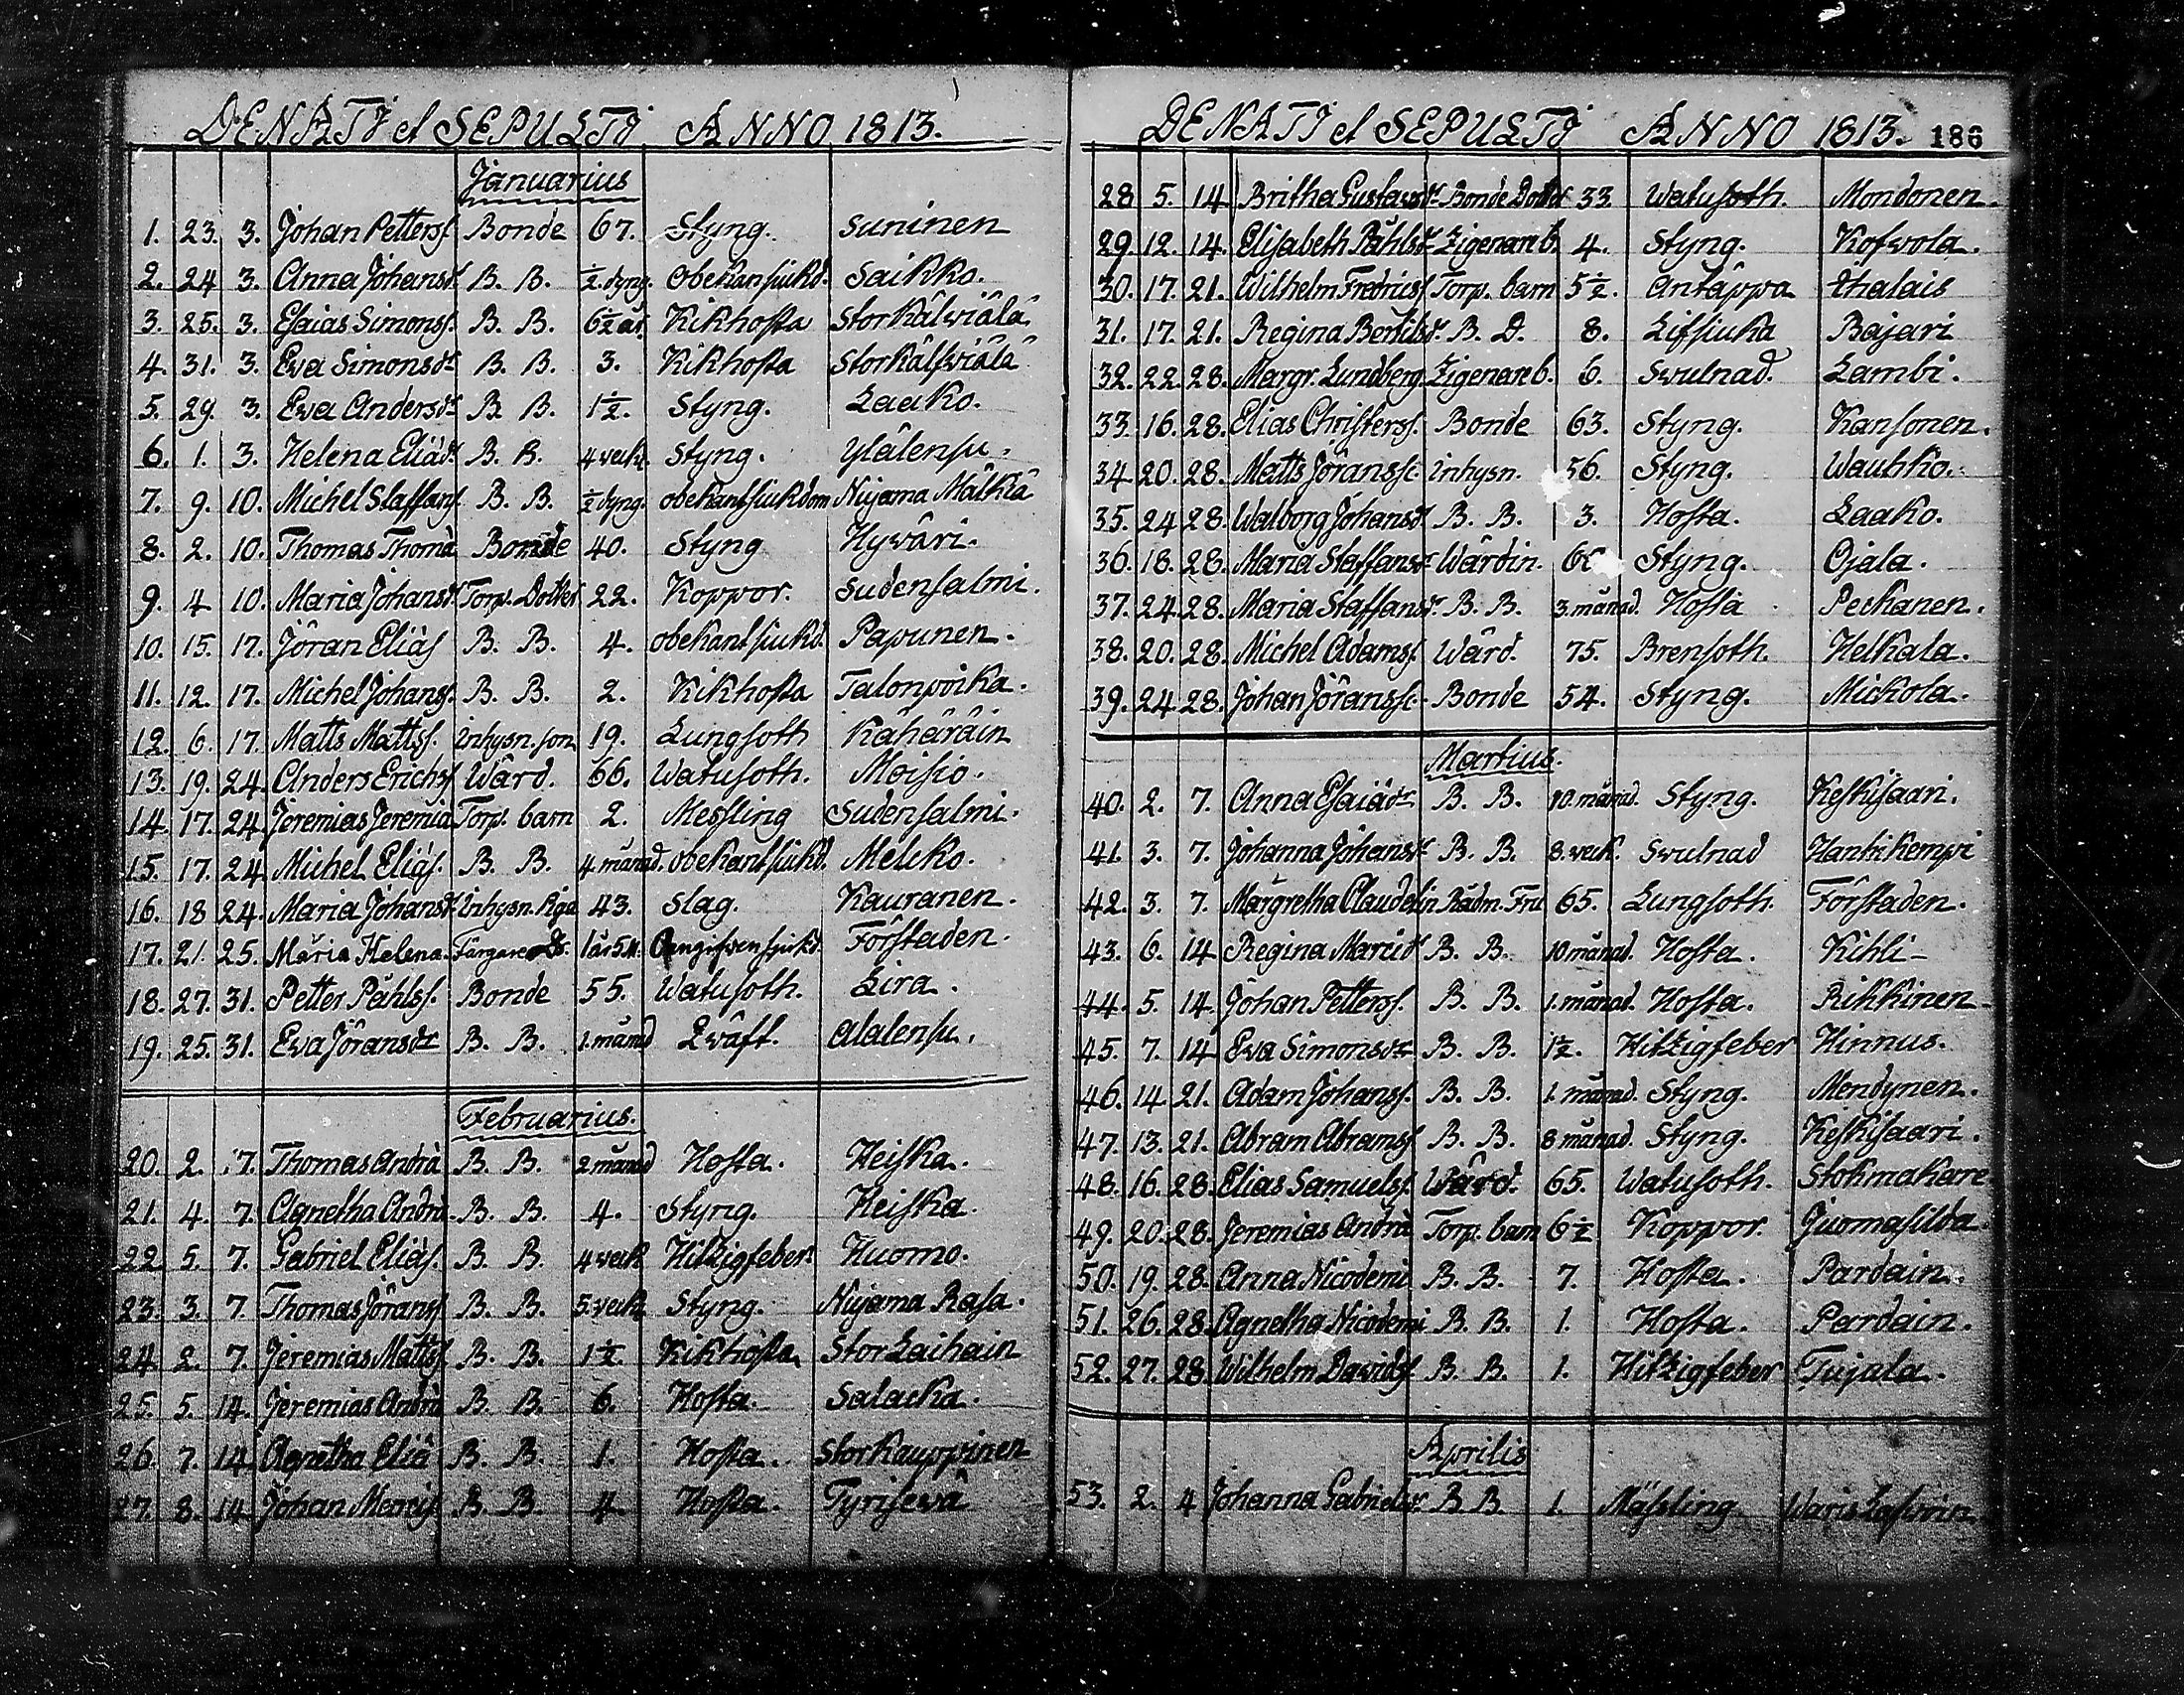 DENATI et SEPULTI ANNO 1813.
Januarius
1. 23. 3. Johan Petterss. Bonde 67. Styng. Suninen
2. 24 3. Anna Johansdr B. B. ½ dyng. Obekant siukd. Saikko.
3. 25. 3. Esaias Simonss. B. B. 6½ år. Kikhosta Storkälwiälä
4. 31. 3. Ewa Simonsdr B. B. 3. Kikhosta Storkälfwiälä
5. 29. 3. Ewa Andersdr B. B. 1½. Styng. Laako.
6. 1. 3. Helena Eliædr B. B. 4 veck. Styng. Ylälensu.
7. 9. 10. Michel Staffans. B. B. ½ dyng. obekant siukdom Nujama Mälkiä
8. 2. 10. Thomas Thomæ Bonde 40. Styng Hywäri.
9. 4 10. Maria Johansdr Torp. Dotter 22. Koppor. Sudensalmi.
10. 15. 17. Jöran Eliæs B. B. 4. obekant siukd. Papunen.
11. 12. 17. Michel Johanss. B. B. 2. Kikhosta Talonpoika.
12. 6. 17. Matts Mattss. Inhysn. son 19. Lungsoth Kähäräin
13. 19. 24. Anders Erichss Wärd. 66. Watusoth. Moisio.
14. 17. 24. Jeremias Jeremiæ Torp. barn 2. Messling Sudensalmi.
15. 17. 24 Michel Eliæs. B. B. 4 månad. obekant siukd. Melcko.
16. 18 24. Maria Johansdr Inhysn. Piga 43. Slag. Kauranen.
17. 21. 25. Maria Helena. Färgare Dr. 1 år 5 M. Oangifwen sjukd. Förstaden.
18. 27. 31. Petter Påhlss. Bonde 55. Watusoth. Lira.
19. 25. 31. Ewa Jöransdr B. B. 1. månad Qwäft. Alalensu.
Februarius.
20. 2. 7. Thomas Andræ B. B. 2 månad Hosta. Heiska.
21. 4. 7. Agnetha Andræ. B. B. 4. Styng. Heiska.
22. 5. 7. Gabriel Eliæs. B. B. 4 veck Hitzigfeber. Huomo.
23. 3. 7. Thomas Jöranss B. B. 5. veck Styng. Nujama Rasa.
24. 2. 7. Jeremias Mattss. B. B. 1½. Kikhosta Stor Laihain
25. 5. 14. Jeremias Andræ B. B. 6. Hosta. Salacka.
26. 7. 14. Agnetha Eliæ B. B. 1. Hosta. Storkauppinen
27. 8. 14. Johan B. B. 4. Hosta. Tyrisewä
DENATI et SEPULTI ANNO 1813. 186
28 5. 14. Britha Gustavsdr Bonde Dotter 33 Watusoth. Mondonen.
29. 12. 14. Elisabeth Påhlsdr Zigenare b. 4. Styng. Kofwola.
30. 17. 21. Wilhelm Fredricss Torp. barn 5½. Antäppa
31. 17. 21. Regina Bertilsdr B. D. 8. Lifsiuka Bajari
32. 22. 28. Margr. Lundberg. Zigenare b. 6. Swulnad. Lambi.
33. 16. 28. Elias Christerss. Bonde 63. Styng. Kansonen.
34 20. 28. Matts Jöranss. Inhysn. 56. Styng. Wauhko.
35. 24 28. Walborg Johansdr B. B. 3. Hosta. Laako.
36. 18. 28. Maria Staffansdr Wärdin. Styng. Ojala.
37. 24. 28. Maria Staffansdr. B. B. 3. månad. Hosta. Peckanen.
38. 20. 28. Michel Adamss. Wärd. 75. Brensoth. Helkala.
39. 24 28. Johan Jöranss. Bonde 54. Styng. Mickola.
Martius.
40. 2. 7. Anna Esaiædr B. B. 10. månad. Styng. Keskisaari.
41. 3. 7. Johanna Johansdr B. B. 8. veck. Swulnad Hantikempi
42. 3. 7. Margretha Claudelin Rådm. Fru 65. Lungsoth. Förstaden.
43. 6. 14 Regina Marcidr B. B. 10 månad. Hosta. Kihli
44. 5. 14. Johan Petterss. B. B. 1. månad. Hosta. Rikkinen
45. 7. 14 Ewa Simonsdr B. B. 1½. Hitzigfeber Hinnus.
46. 14 21. Adam Johanss. B. B. 1. månad. Styng. Mendynen.
47. 13. 21. Abram Abramss. B. B. 8 månad. Styng. Keskisaari.
48. 16. 28. Elias Samuelss. Wärd. 65. Watusoth. Stokmakare
49. 20. 28. Jeremias Andræ Torp. barn 6½ Koppor. Juomasilda.
50. 19. 28. Anna Nicodemi B. B. 7. Hosta. Pardain.
51. 26. 28. Agnetha Nicodemi B. B. 1. Hosta. Pardain.
52. 27. 28. Wilhelm Davids. B. B. 1. Hitzigfeber Tujala.
Aprilis
53. 2. 4 Johanna Gabrielsdr B B. 1. Mässling.